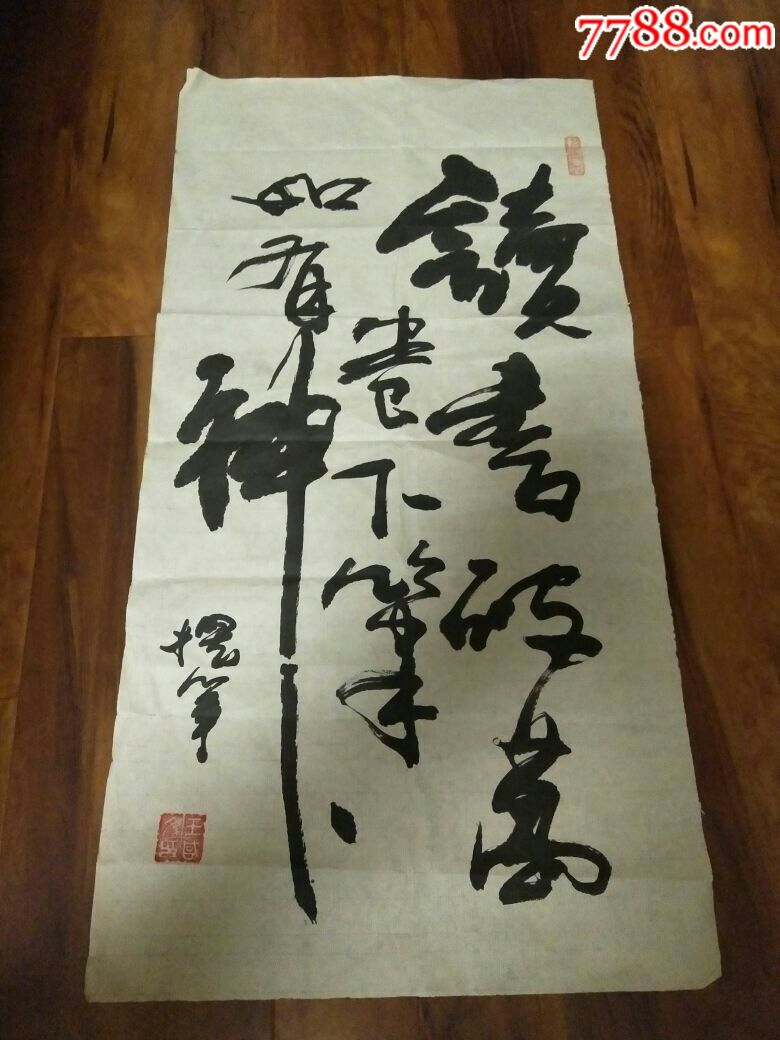 7788.com
讀書破萬
卷下筆、
如有神